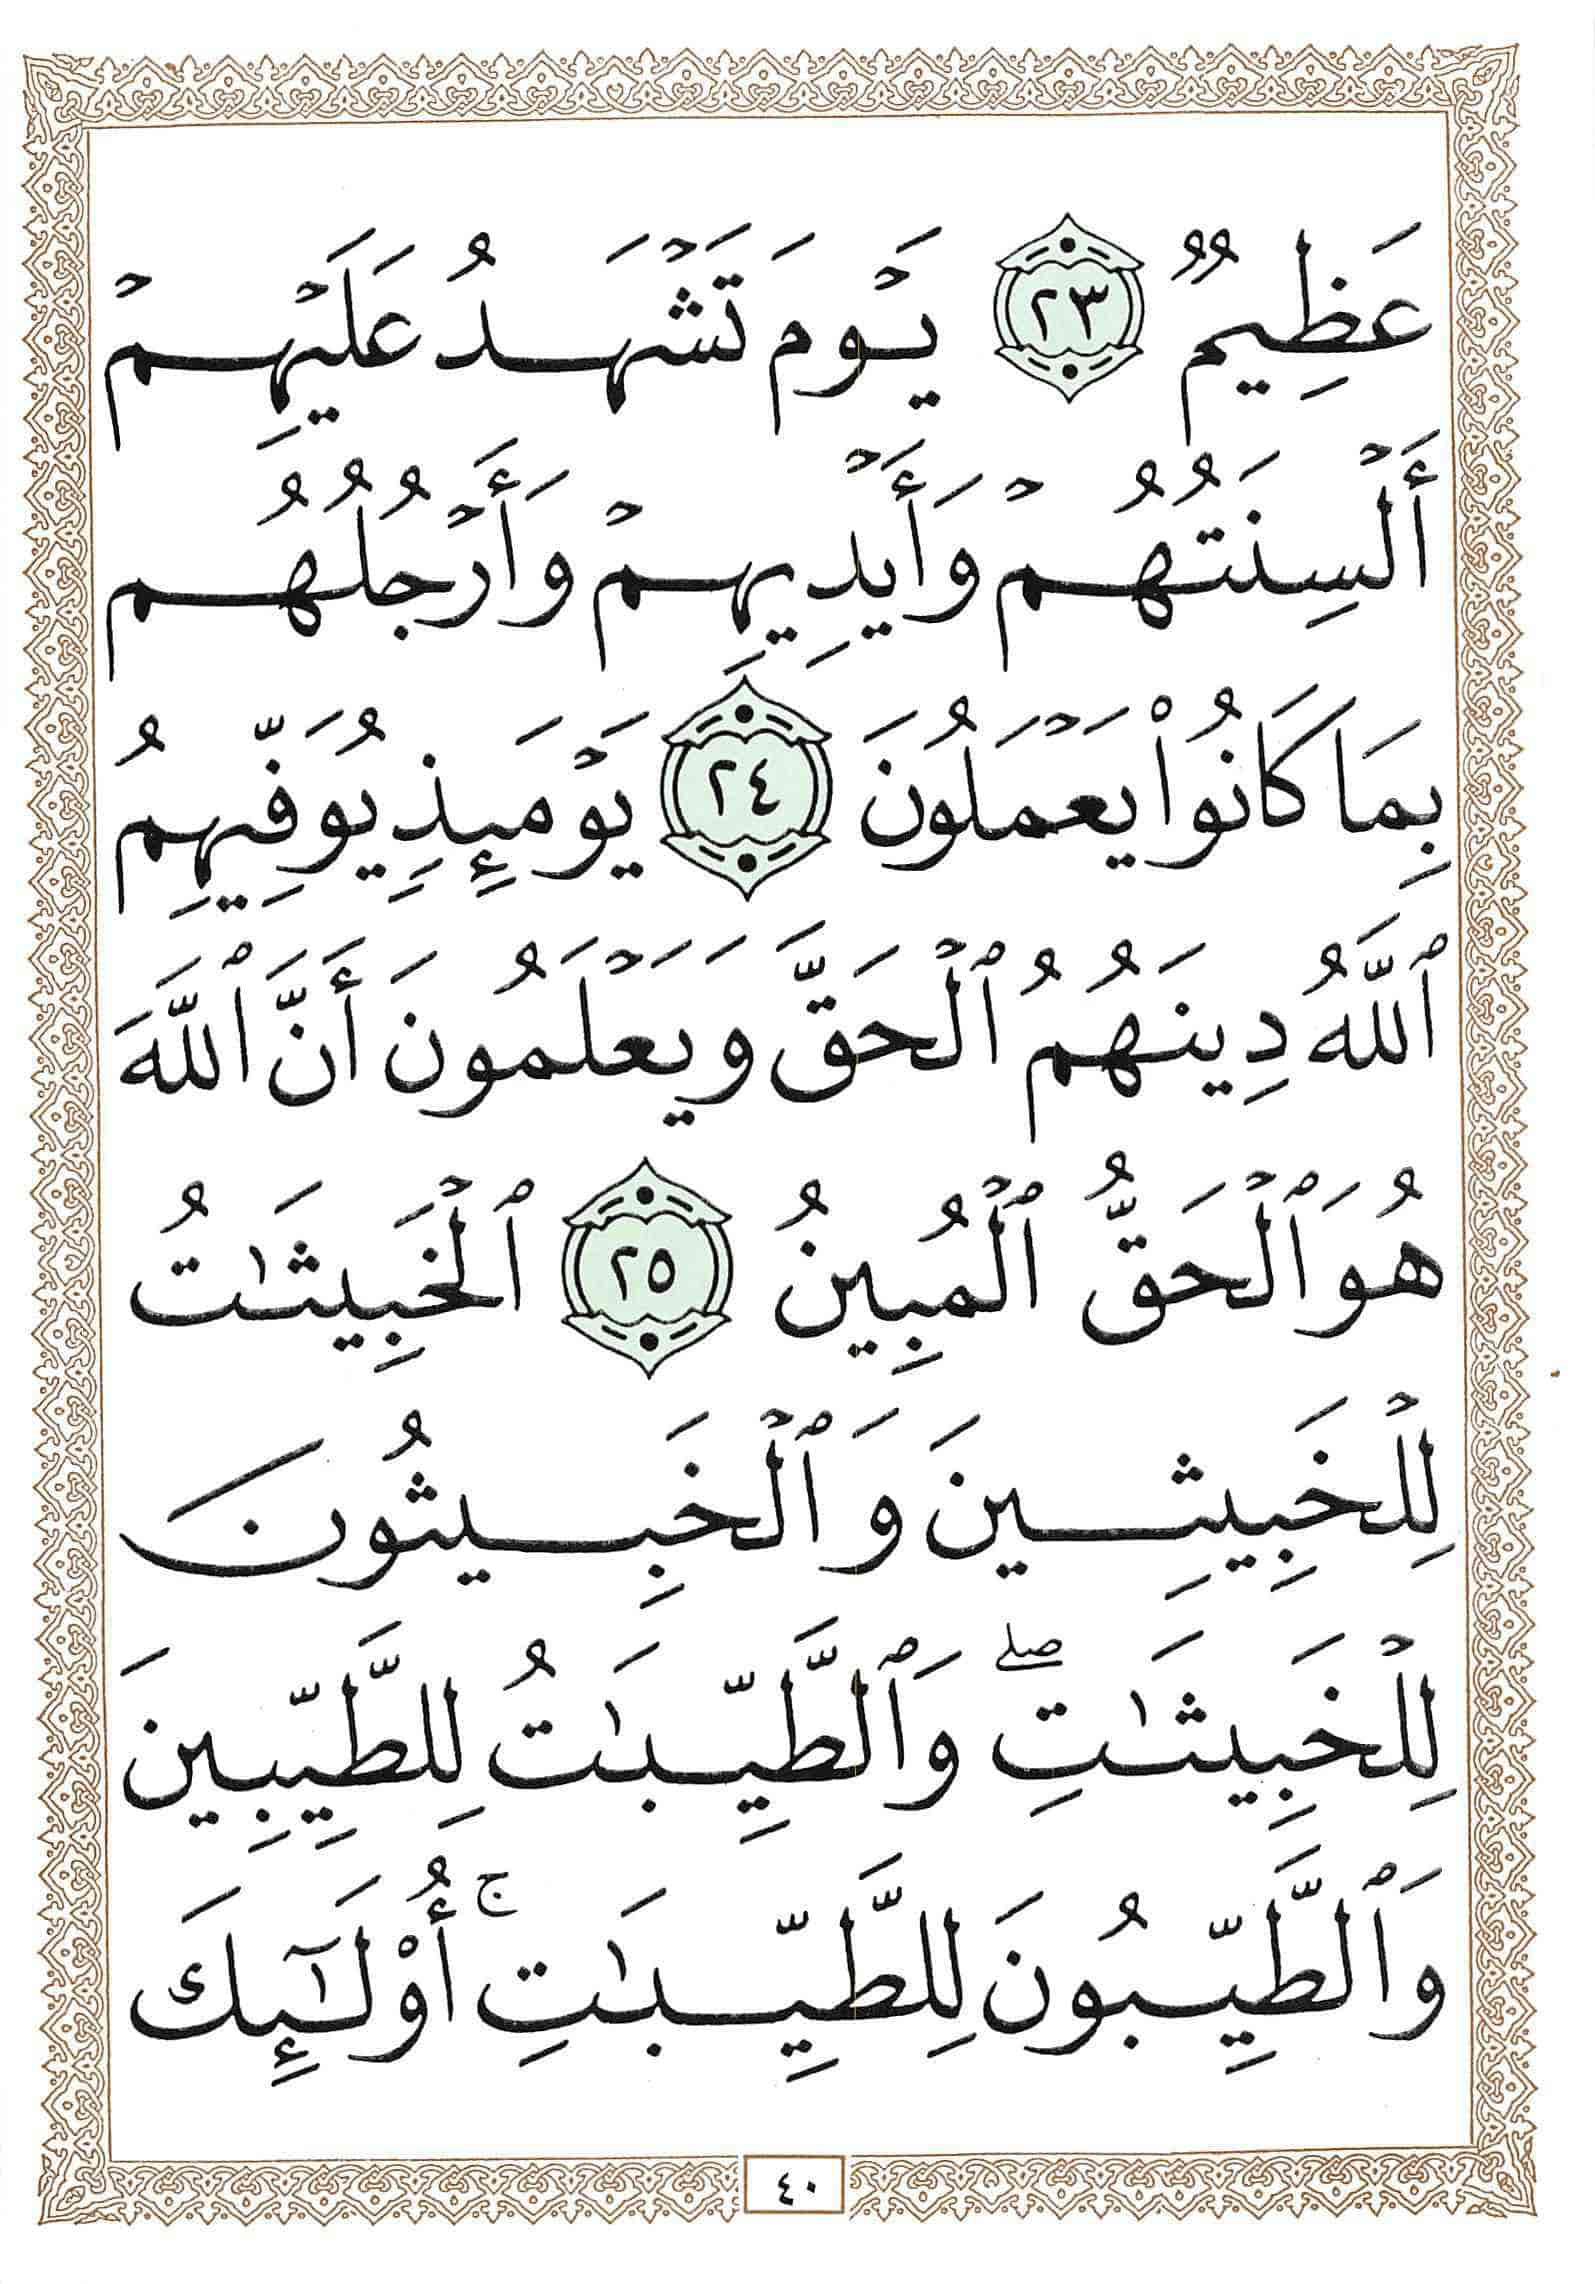 عَظِيمٌ ٢٣ يَوْمَ تَشْهَدُ عَلَيْهِمْ
أَلْسِنَتُهُمْ وَأَيْدِيهِمْ وَأَرْجُلُهُم
بِمَا كَانُوا۟ يَعْمَلُونَ ٢٤ يَوْمَئِذٍ يُوَفِّيهِمُ
ٱللَّهُ دِينَهُمُ ٱلْحَقَّ وَيَعْلَمُونَ أَنَّ ٱللَّهَ
هُوَ ٱلْحَقُّ ٱلْمُبِينُ ٢٥ ٱلْخَبِيثَـٰتُ
لِلْخَبِيثِينَ وَٱلْخَبِيثُونَ
لِلْخَبِيثَـٰتِ ۖ وَٱلطَّيِّبَـٰتُ لِلطَّيِّبِينَ
وَٱلطَّيِّبُونَ لِلطَّيِّبَـٰتِ ۚ أُو۟لَـٰٓئِكَ
٤٠